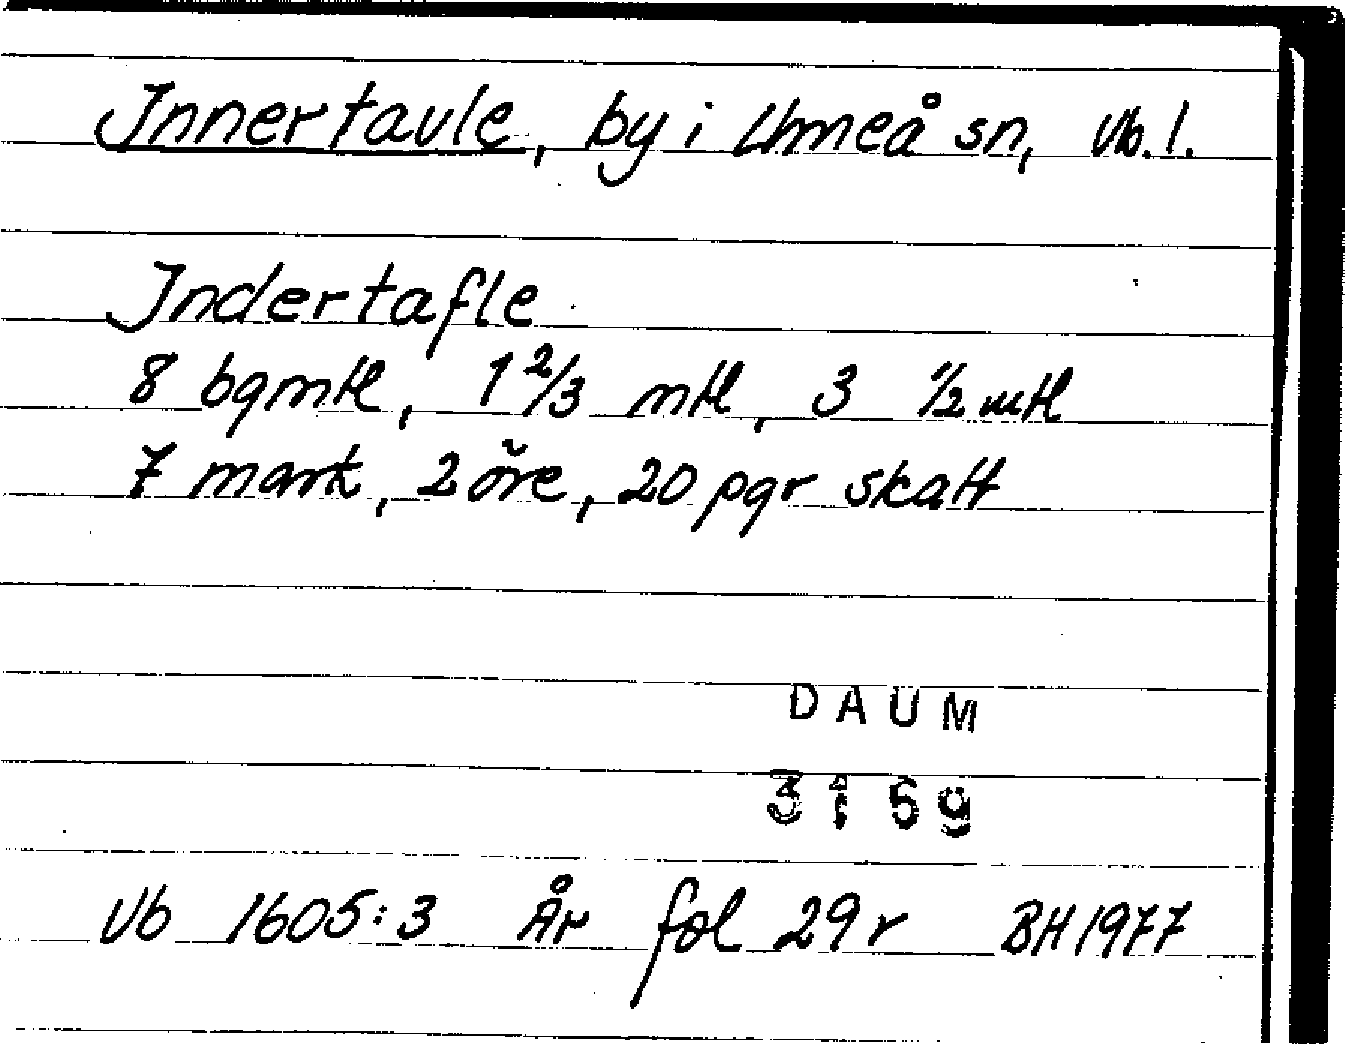 Innertavle, by i Umeå sn, Vb. l.
Indertafle
8 bqmtl, 1 2/3 mtl, 3 1/2 mtl
7 mark, 2 öre, 20 pgr skatt
DAUM
3159
Vb 1605:3 År fol 29r BH 1977